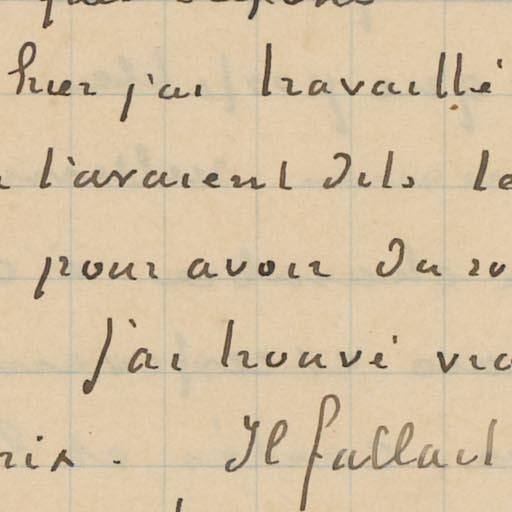 hier j'ai travaillé
l'avaient dit
pour avoir du
j'ai trouvé
Il fallait